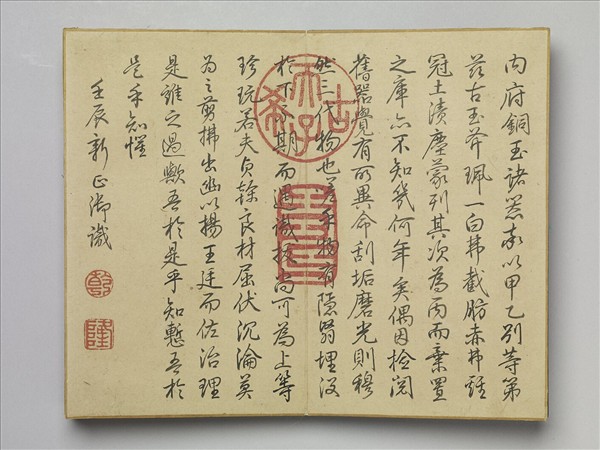 內府銅玉諸器率以甲乙別等第
茲古玉斧珮一白弗截肪赤弗雞
冠土漬塵蒙列其次為丙而棄置
之庫亦不知幾何年矣偶因檢閱
舊器覺有所異命刮垢磨光則穆
然三代物也嗟乎物有隱翳埋沒
於下不期而遇識拔尚可為上等
珍玩若夫貞榦良材屈伏沉淪莫
為之剪拂出幽以揚王廷而佐治理
是誰之過歟吾於是乎知慙吾於
是乎知懼
壬辰新正御識
乾
隆
古稀天子
壽